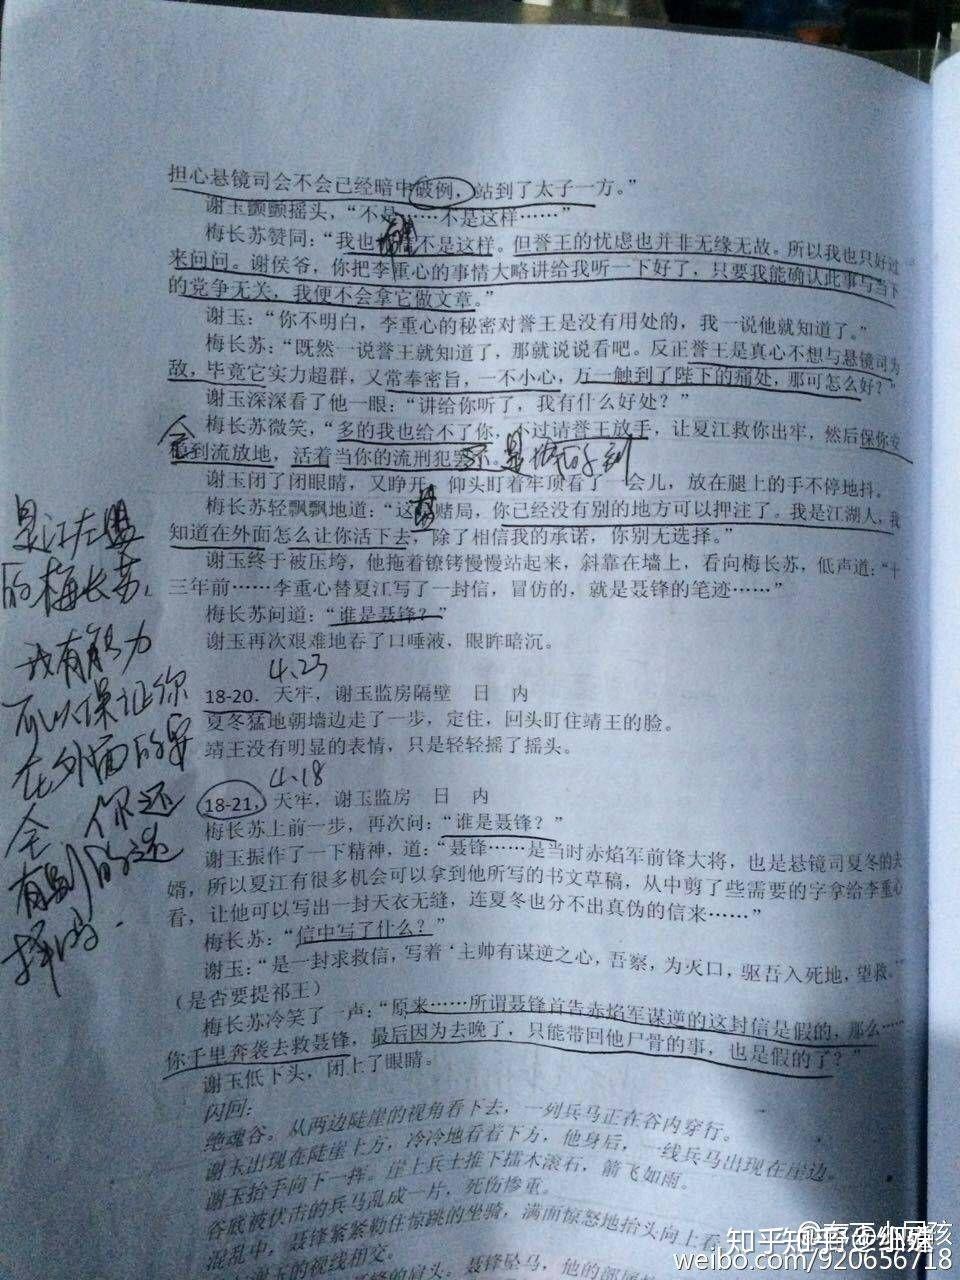 担心悬镜司会不会已经暗中破例，站到了太子一方。”
谢玉颤颤摇头，“不是……不是这样……”
梅长苏赞同：“我也 不是这样。但誉王的忧虑也并非无缘无故。所以我也只好过
来问问。谢侯爷，你把李重心的事情大略讲给我听一下好了，只要我能确认此事与当下
的党争无关，我便不会拿它做文章。”
谢玉：“你不明白，李重心的秘密对誉王是没有用处的，我一说他就知道了。”
梅长苏：“既然一说誉王就知道了，那就说说看吧。反正誉王是真心不想与悬镜司为
敌，毕竟它实力超群，又常奉密旨，一不小心，万一触到了陛下的痛处，那可怎么好？”
谢玉深深看了他一眼：“讲给你听了，我有什么好处？”
梅长苏微笑，“多的我也给不了你，不过请誉王放手，让夏江救你出牢，然后保你安
全 到流放地，活着当你的流刑犯罢
谢玉闭了闭眼睛，又睁开，仰头盯着牢顶看了一会儿，放在腿上的手不停地抖。
梅长苏轻飘飘地道：“这 赌局，你已经没有别的地方可以押注了。我是江湖人，我
知道在外面怎么让你活下去，除了相信我的承诺，你别无选择。”
谢玉终于被压垮，他拖着镣铐慢慢站起来，斜靠在墙上，看向梅长苏，低声道：“十
三年前……李重心替夏江写了一封信，冒仿的，就是聂锋的笔迹……”
梅长苏问道：“谁是聂锋？”
谢玉再次艰难地吞了口唾液，眼眸暗沉。
是江左盟
的梅长苏，
我有能力
可以保证你
在外面的安
全 你还
有别的选
择吗.
4.23
18-20. 天牢，谢玉监房隔壁 日 内
夏冬猛地朝墙边走了一步，定住，回头盯住靖王的脸。
靖王没有明显的表情，只是轻轻摇了摇头。
4.18
18-21. 天牢，谢玉监房 日 内
梅长苏上前一步，再次问：“谁是聂锋？”
谢玉振作了一下精神，道：“聂锋……是当时赤焰军前锋大将，也是悬镜司夏冬的夫
婿，所以夏江有很多机会可以拿到他所写的书文草稿，从中剪了些需要的字拿给李重心
看，让他可以写出一封天衣无缝，连夏冬也分不出真伪的信来……”
梅长苏：“信中写了什么？”
谢玉：“是一封求救信，写着‘主帅有谋逆之心，吾察，为灭口，驱吾入死地，望救。’”
（是否要提祁王）
梅长苏冷笑了一声：“原来……所谓聂锋首告赤焰军谋逆的这封信是假的，那么……
你千里奔袭去救聂锋，最后因为去晚了，只能带回他尸骨的事，也是假的了？”
谢玉低下头，闭上了眼睛。
闪回：
绝魂谷。从两边陡崖的视角看下去，一列兵马正在谷内穿行。
谢玉出现在陡崖上方，冷冷地看着下方，他身后，一线兵马出现在崖边。
谢玉抬手向下一挥。崖上兵士推下擂木滚石，箭飞如雨。
谷底被伏击的兵马乱成一片，死伤惨重。
混乱中，聂锋紧紧勒住惊跳的坐骑，满面惊怒地抬头向上看
玉的视线相交。
的肩头。聂锋坠马，他的部属
weibo.com/920656718